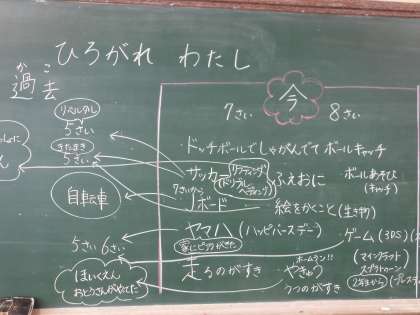 ひろがれ わたし
かこ
過去
今
7さい
8さい
リベルタし
5さい
きたまき
5さい
自転車
・ドッチボールでしゃがんでてボールキャッチ
サッカー
リフティング
(ドリブル
ヘディング)
ふえおに
ボールあそび
(キャッチ)
7さいから
Jボード
絵をかくこと(生き物)
ヤマハ(ハッピバースデー)
家にピアノがきた
ゲーム(3DS)
(マインクラフト
スプラトゥーン)
2年まから
(プレステ
5さい 6さい
ほいくえん
おとうさんがやってた
走るのがすき
ホームラン!!
やきゅう
うつのがすき